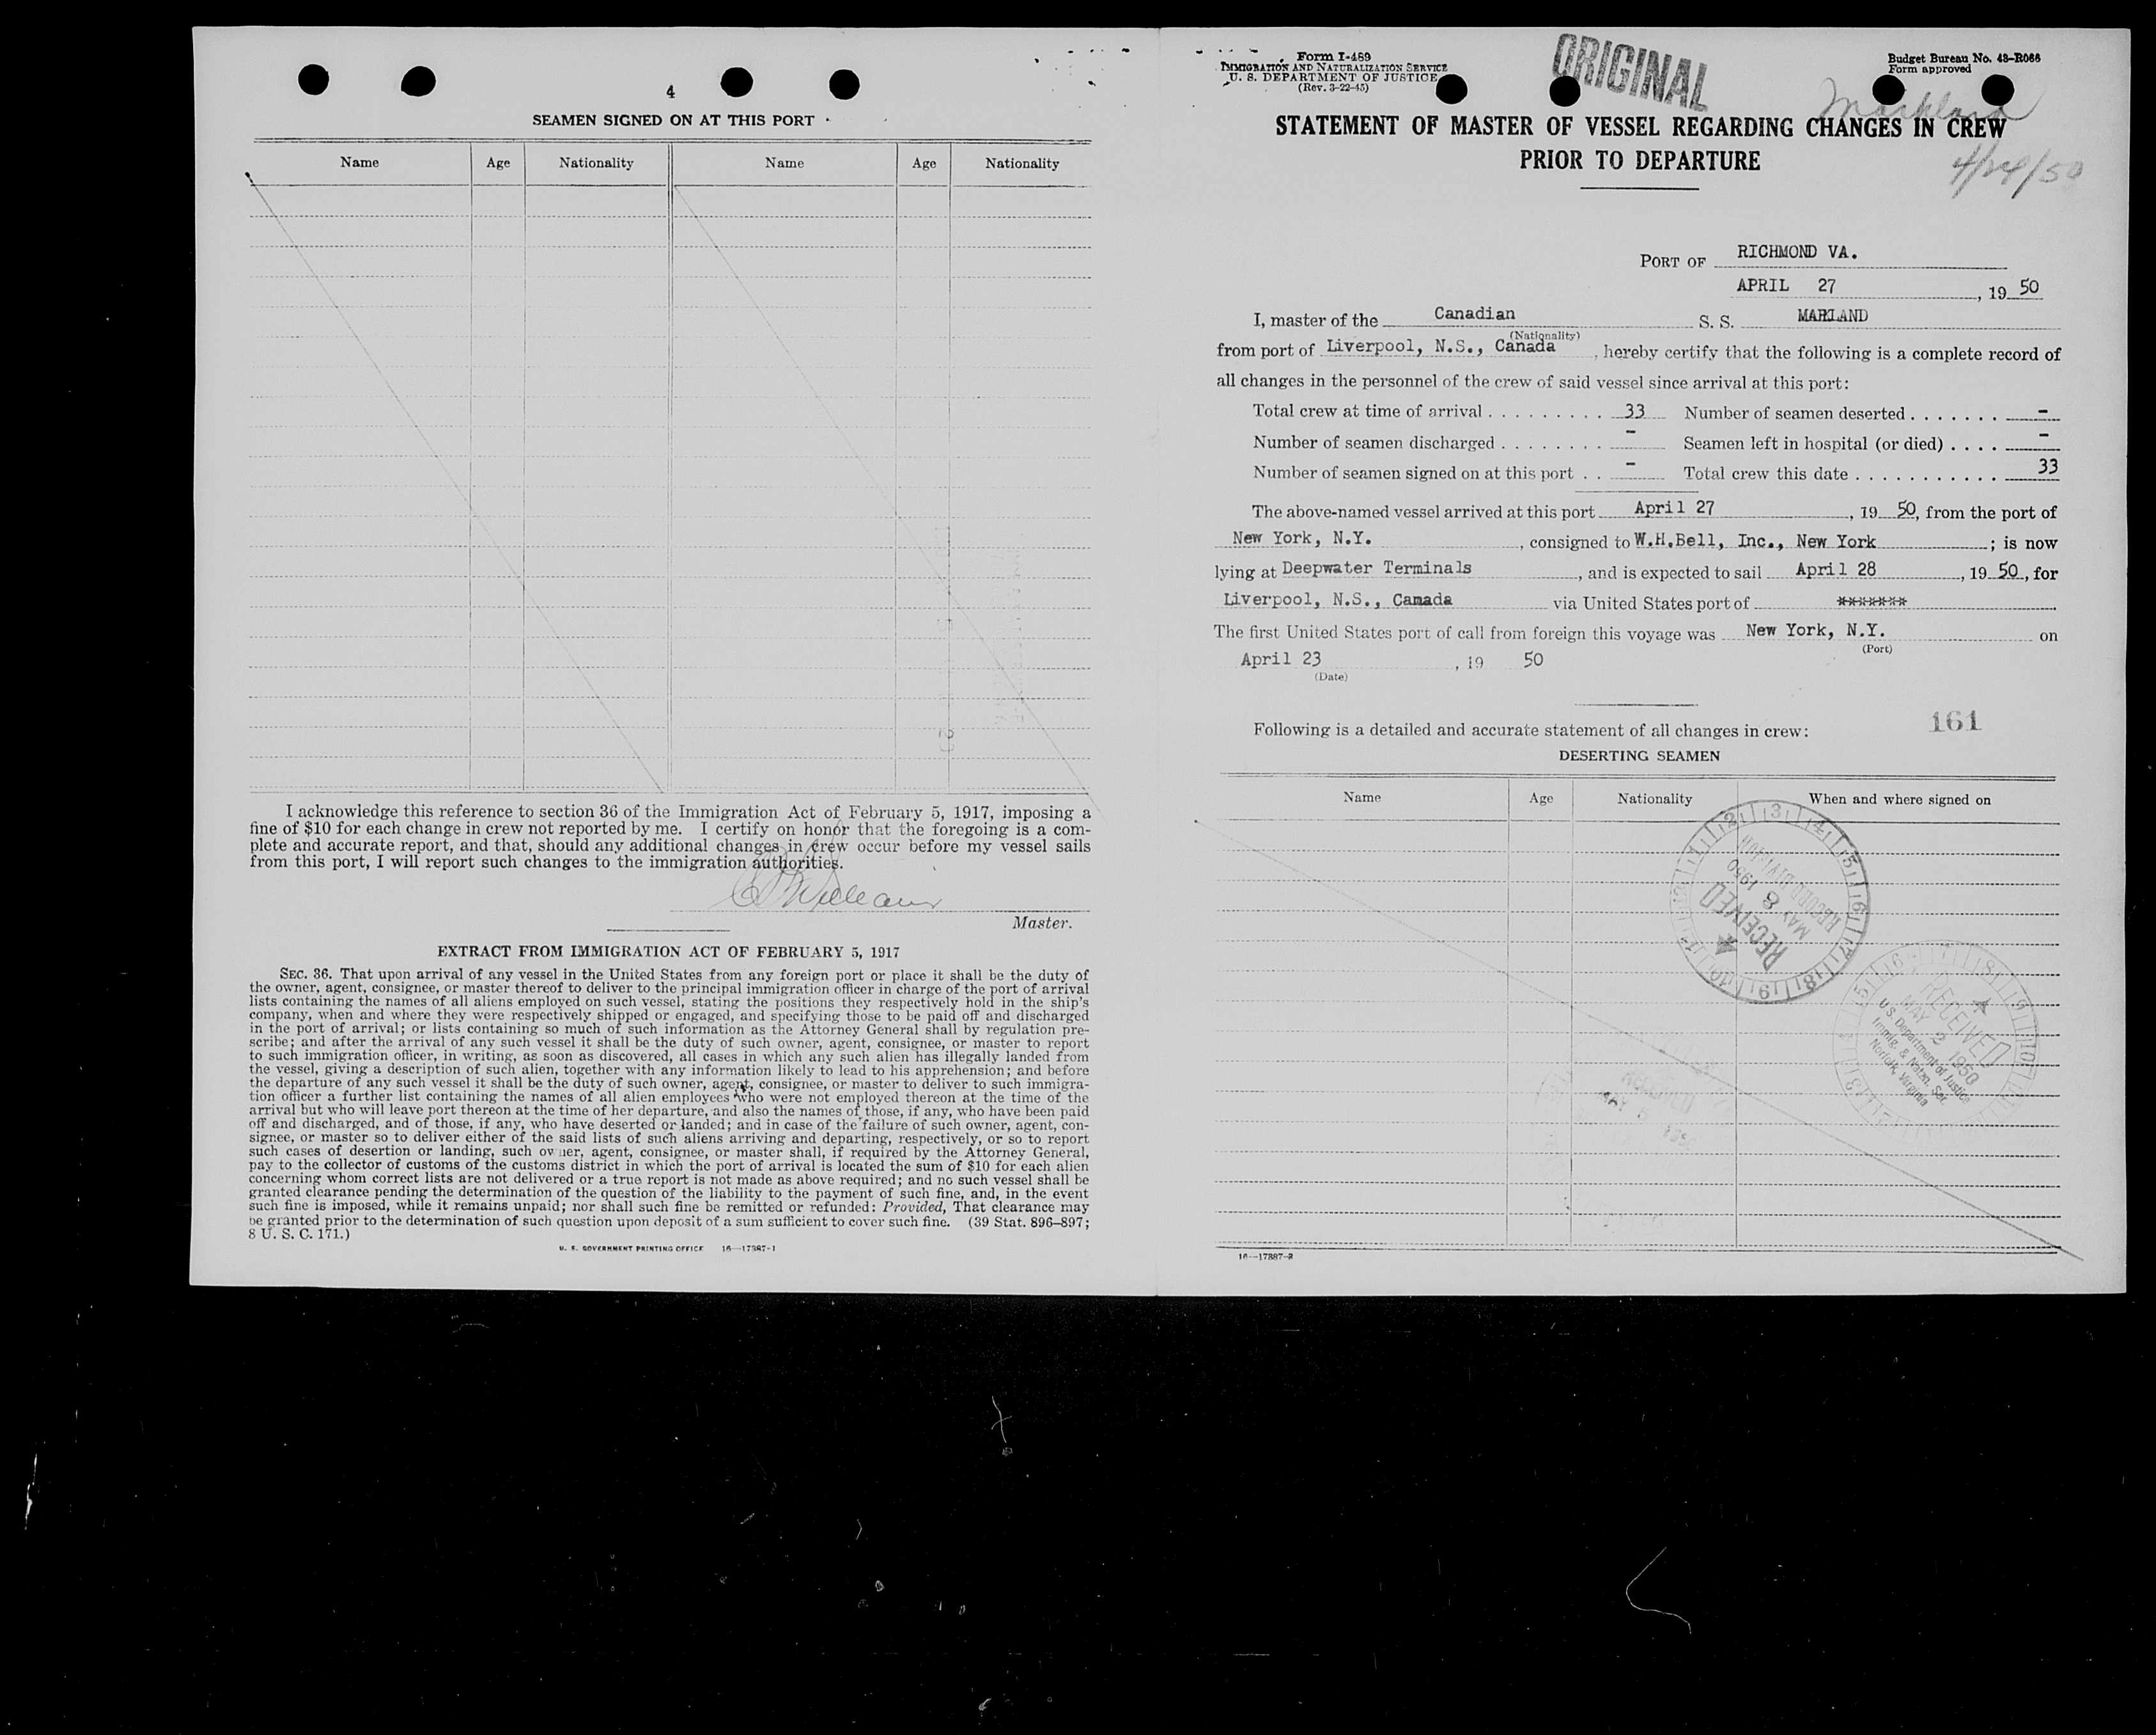 4
SEAMEN SIGNED ON AT THIS PORT
Name Age Nationality Name Age Nationality
I acknowledge this reference to section 36 of the Immigration Act of February 5, 1917, imposing a
fine of $10 for each change in crew not reported by me. I certify on honor that the foregoing is a com-
plete and accurate report, and that, should any additional changes in crew occur before my vessel sails
from this port, I will report such changes to the immigration authorities.
Master.
EXTRACT FROM IMMIGRATION ACT OF FEBRUARY 5, 1917
SEC. 36. That upon arrival of any vessel in the United States from any foreign port or place it shall be the duty of
the owner, agent, consignee, or master thereof to deliver to the principal immigration officer in charge of the port of arrival
lists containing the names of all aliens employed on such vessel, stating the positions they respectively hold in the ship's
company, when and where they were respectively shipped or engaged, and specifying those to be paid off and discharged
in the port of arrival; or lists containing so much of such information as the Attorney General shall by regulation pre-
scribe; and after the arrival of any such vessel it shall be the duty of such owner, agent, consignee, or master to report
to such immigration officer, in writing, as soon as discovered, all cases in which any such alien has illegally landed from
the vessel, giving a description of such alien, together with any information likely to lead to his apprehension; and before
the departure of any such vessel it shall be the duty of such owner, agent, consignee, or master to deliver to such immigra-
tion officer a further list containing the names of all alien employees who were not employed thereon at the time of the
arrival but who will leave port thereon at the time of her departure, and also the names of those, if any, who have been paid
off and discharged, and of those, if any, who have deserted or landed; and in case of the failure of such owner, agent, con-
signee, or master so to deliver either of the said lists of such aliens arriving and departing, respectively, or so to report
such cases of desertion or landing, such owner, agent, consignee, or master shall, if required by the Attorney General,
pay to the collector of customs of the customs district in which the port of arrival is located the sum of $10 for each alien
concerning whom correct lists are not delivered or a true report is not made as above required; and no such vessel shall be
granted clearance pending the determination of the question of the liability to the payment of such fine, and, in the event
such fine is imposed, while it remains unpaid; nor shall such fine be remitted or refunded: Provided, That clearance may
be granted prior to the determination of such question upon deposit of a sum sufficient to cover such fine. (39 Stat. 896–897;
8 U. S. C. 171.)
U. S. GOVERNMENT PRINTING OFFICE 16—17887-1
Form I-489
IMMIGRATION AND NATURALIZATION SERVICE
U. S. DEPARTMENT OF JUSTICE
(Rev. 3-22-45)
ORIGINAL
Budget Bureau No. 43-R066
Form approved
Markland
STATEMENT OF MASTER OF VESSEL REGARDING CHANGES IN CREW
PRIOR TO DEPARTURE
4/24/50
PORT OF RICHMOND VA.
APRIL 27, 19 50
I, master of the Canadian S. S. MARLAND
(Nationality)
from port of Liverpool, N.S., Canada, hereby certify that the following is a complete record of
all changes in the personnel of the crew of said vessel since arrival at this port:
Total crew at time of arrival . . . . . . . . . 33 Number of seamen deserted . . . . . . . -
Number of seamen discharged . . . . . . . . - Seamen left in hospital (or died) . . . . -
Number of seamen signed on at this port . . - Total crew this date . . . . . . . . . . . 33
The above-named vessel arrived at this port April 27, 19 50, from the port of
New York, N.Y., consigned to W.H.Bell, Inc., New York; is now
lying at Deepwater Terminals, and is expected to sail April 28, 19 50, for
Liverpool, N.S., Canada via United States port of *******
The first United States port of call from foreign this voyage was New York, N.Y. on
(Port)
April 23, 19 50
(Date)
Following is a detailed and accurate statement of all changes in crew:
161
DESERTING SEAMEN
Name Age Nationality When and where signed on
RECEIVED
MAY 8 1950
RECORD DIVISION
RECEIVED
MAY 2 1950
U.S. Department of Justice
Immig. & Natzn. Ser.
Norfolk, Virginia
RECEIVED
MAY
16—17887-2